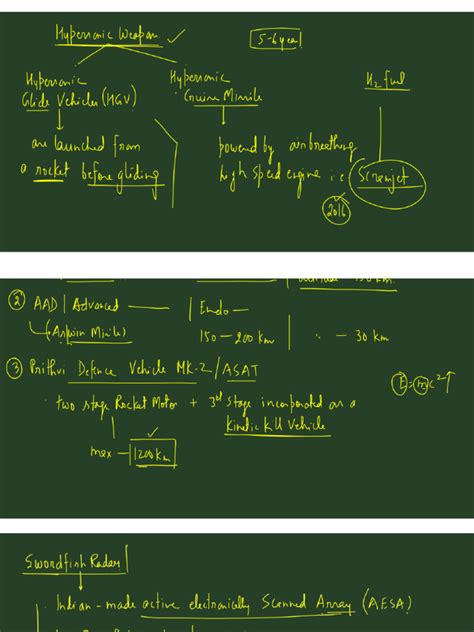 Hypersonic Weapon ✓
5-6 year
Hypersonic
Glide Vehicles (HGV)
Hypersonic
Cruise Missile
H2 fuel
are launched from
a rocket before gliding
powered by air breathing
high speed engine i.e Scramjet
2016
② AAD | Advanced —
Endo —
(Aswin Missile)
150 – 200 km
– 30 km
③ Prithvi Defence Vehicle MK-2 / ASAT
E = mc2 ↑
· two stage Rocket Motor + 3rd stage incorporated as a
Kinetic Kill Vehicle
max — 1200 km
Swordfish Radar
· Indian-made active electronically Scanned Array (AESA)